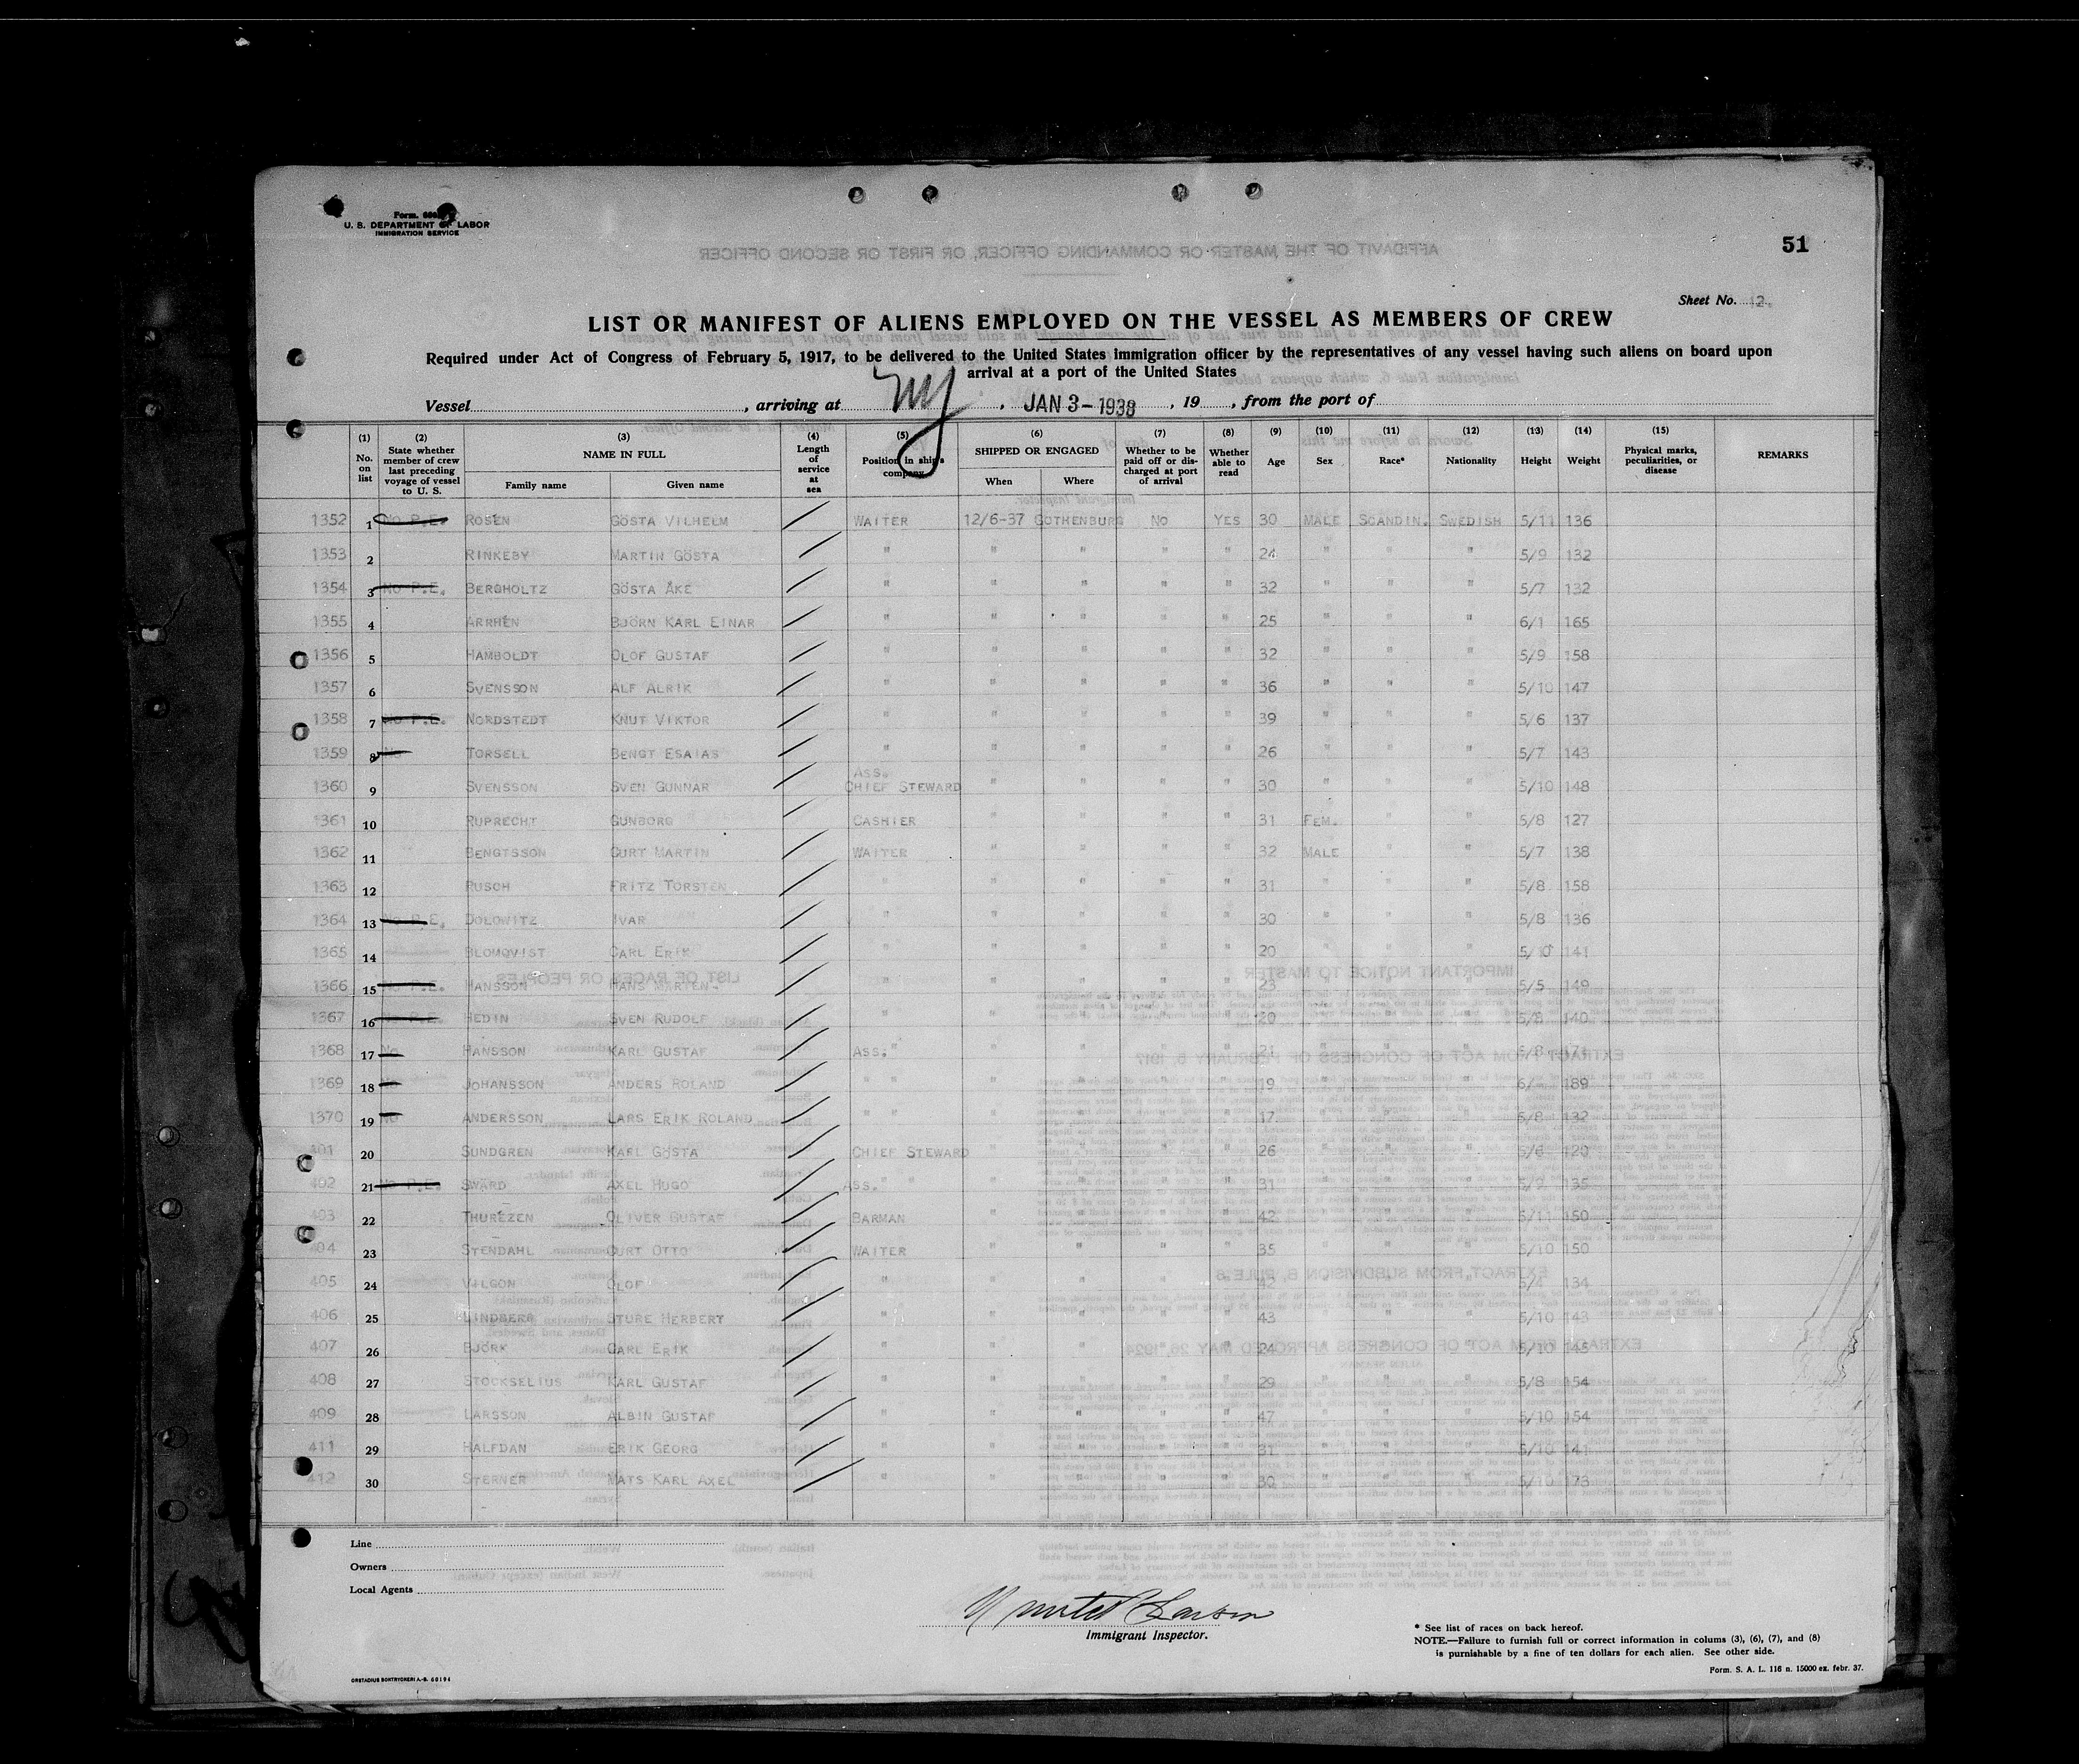 Form. 680
U. S. DEPARTMENT OF LABOR
IMMIGRATION SERVICE
51
Sheet No. 12.
LIST OR MANIFEST OF ALIENS EMPLOYED ON THE VESSEL AS MEMBERS OF CREW
Required under Act of Congress of February 5, 1917, to be delivered to the United States immigration officer by the representatives of any vessel having such aliens on board upon
arrival at a port of the United States
Vessel, arriving at NY, JAN 3-1938, 19, from the port of
(1) (2) (3) (4) (5) (6) (7) (8) (9) (10) (11) (12) (13) (14) (15)
No. on list State whether member of crew last preceding voyage of vessel to U. S. NAME IN FULL Family name Given name Length of service at sea Position in ship's company SHIPPED OR ENGAGED When Where Whether to be paid off or discharged at port of arrival Whether able to read Age Sex Race* Nationality Height Weight Physical marks, peculiarities, or disease REMARKS
1352 1 No P.E. ROSEN GÖSTA VILHELM WAITER 12/6-37 GOTHENBURG NO YES 30 MALE SCANDIN. SWEDISH 5/11 136
1353 2 RINKEBY MARTIN GÖSTA " " " " " 24 " " " 5/9 132
1354 3 No P.E. BERGHOLTZ GÖSTA ÅKE " " " " " 32 " " " 5/7 132
1355 4 ARRHÉN BJÖRN KARL EINAR " " " " " 25 " " " 6/1 165
1356 5 HAMBOLDT OLOF GUSTAF " " " " " 32 " " " 5/9 158
1357 6 SVENSSON ALF ALRIK " " " " " 36 " " " 5/10 147
1358 7 No P.E. NORDSTEDT KNUT VIKTOR " " " " " 39 " " " 5/6 137
1359 8 No TORSELL BENGT ESAIAS " " " " " 26 " " " 5/7 143
1360 9 SVENSSON SVEN GUNNAR ASS. CHIEF STEWARD " " " " 30 " " " 5/10 148
1361 10 RUPRECHT GUNBORG CASHIER " " " " 31 FEM. " " 5/8 127
1362 11 BENGTSSON CURT MARTIN WAITER " " " " 32 MALE " " 5/7 138
1363 12 RUSCH FRITZ TORSTEN " " " " " 31 " " " 5/8 158
1364 13 No P.E. DOLOWITZ IVAR " " " " " 30 " " " 5/8 136
1365 14 BLOMQVIST CARL ERIK " " " " " 20 " " " 5/10 141
1366 15 No P.E. HANSSON HANS MÅRTEN " " " " " 23 " " " 5/5 149
1367 16 No P.E. HEDIN SVEN RUDOLF " " " " " 20 " " " 5/8 140
1368 17 No HANSSON KARL GUSTAF ASS. " " " " " 21 " " " 5/8 171
1369 18 No JOHANSSON ANDERS ROLAND " " " " " " 19 " " " 189
1370 19 No ANDERSSON LARS ERIK ROLAND " " " " " " 17 " " " 5/8 132
401 20 SUNDGREN KARL GÖSTA CHIEF STEWARD " " " " 26 " " " 5/6 120
402 21 No P.E. SWÄRD AXEL HUGO ASS. " " " " " " 31 " " " 5/9 135
403 22 THUREZEN OLIVER GUSTAF BARMAN " " " " 42 " " " 5/11 150
404 23 STENDAHL CURT OTTO WAITER " " " " 35 " " " 5/10 150
405 24 VILGON OLOF " " " " " 42 " " " 5/4 134
406 25 LINDBERG STURE HERBERT " " " " " 43 " " " 5/10 143
407 26 BJÖRK CARL ERIK " " " " " 24 " " " 5/10 145
408 27 STOCKSELIUS KARL GUSTAF " " " " " 29 " " " 5/8 154
409 28 LARSSON ALBIN GUSTAF " " " " " 47 " " " 5/10 154
411 29 HALFDAN ERIK GEORG " " " " " 31 " " " 5/10 141
412 30 STERNER MATS KARL AXEL " " " " " 30 " " " 5/10 173
Line
Owners
Local Agents
Immigrant Inspector.
* See list of races on back hereof.
NOTE.—Failure to furnish full or correct information in colums (3), (6), (7), and (8)
is punishable by a fine of ten dollars for each alien. See other side.
Form. S. A. L. 116 n. 15000 ex. febr. 37.